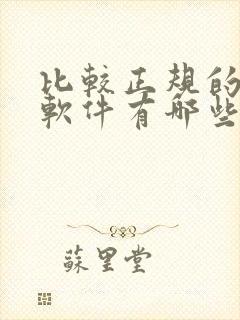 比較正規的
軟件有哪些
蘇里堂